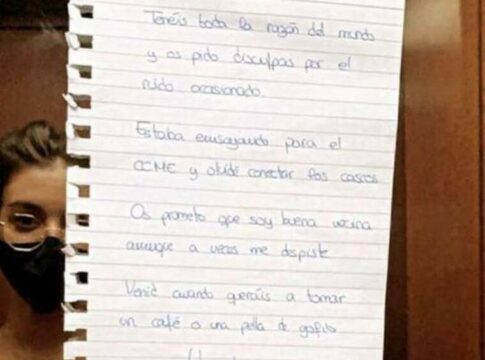 Tenéis toda la razón del mundo
y os pido disculpas por el
ruido ocasionado.
Estaba ensayando para el
CCME y olvidé conectar los cascos
Os prometo que soy buena vecina
aunque a veces me despiste
Venid cuando queráis a tomar
un café o una pella de gofio